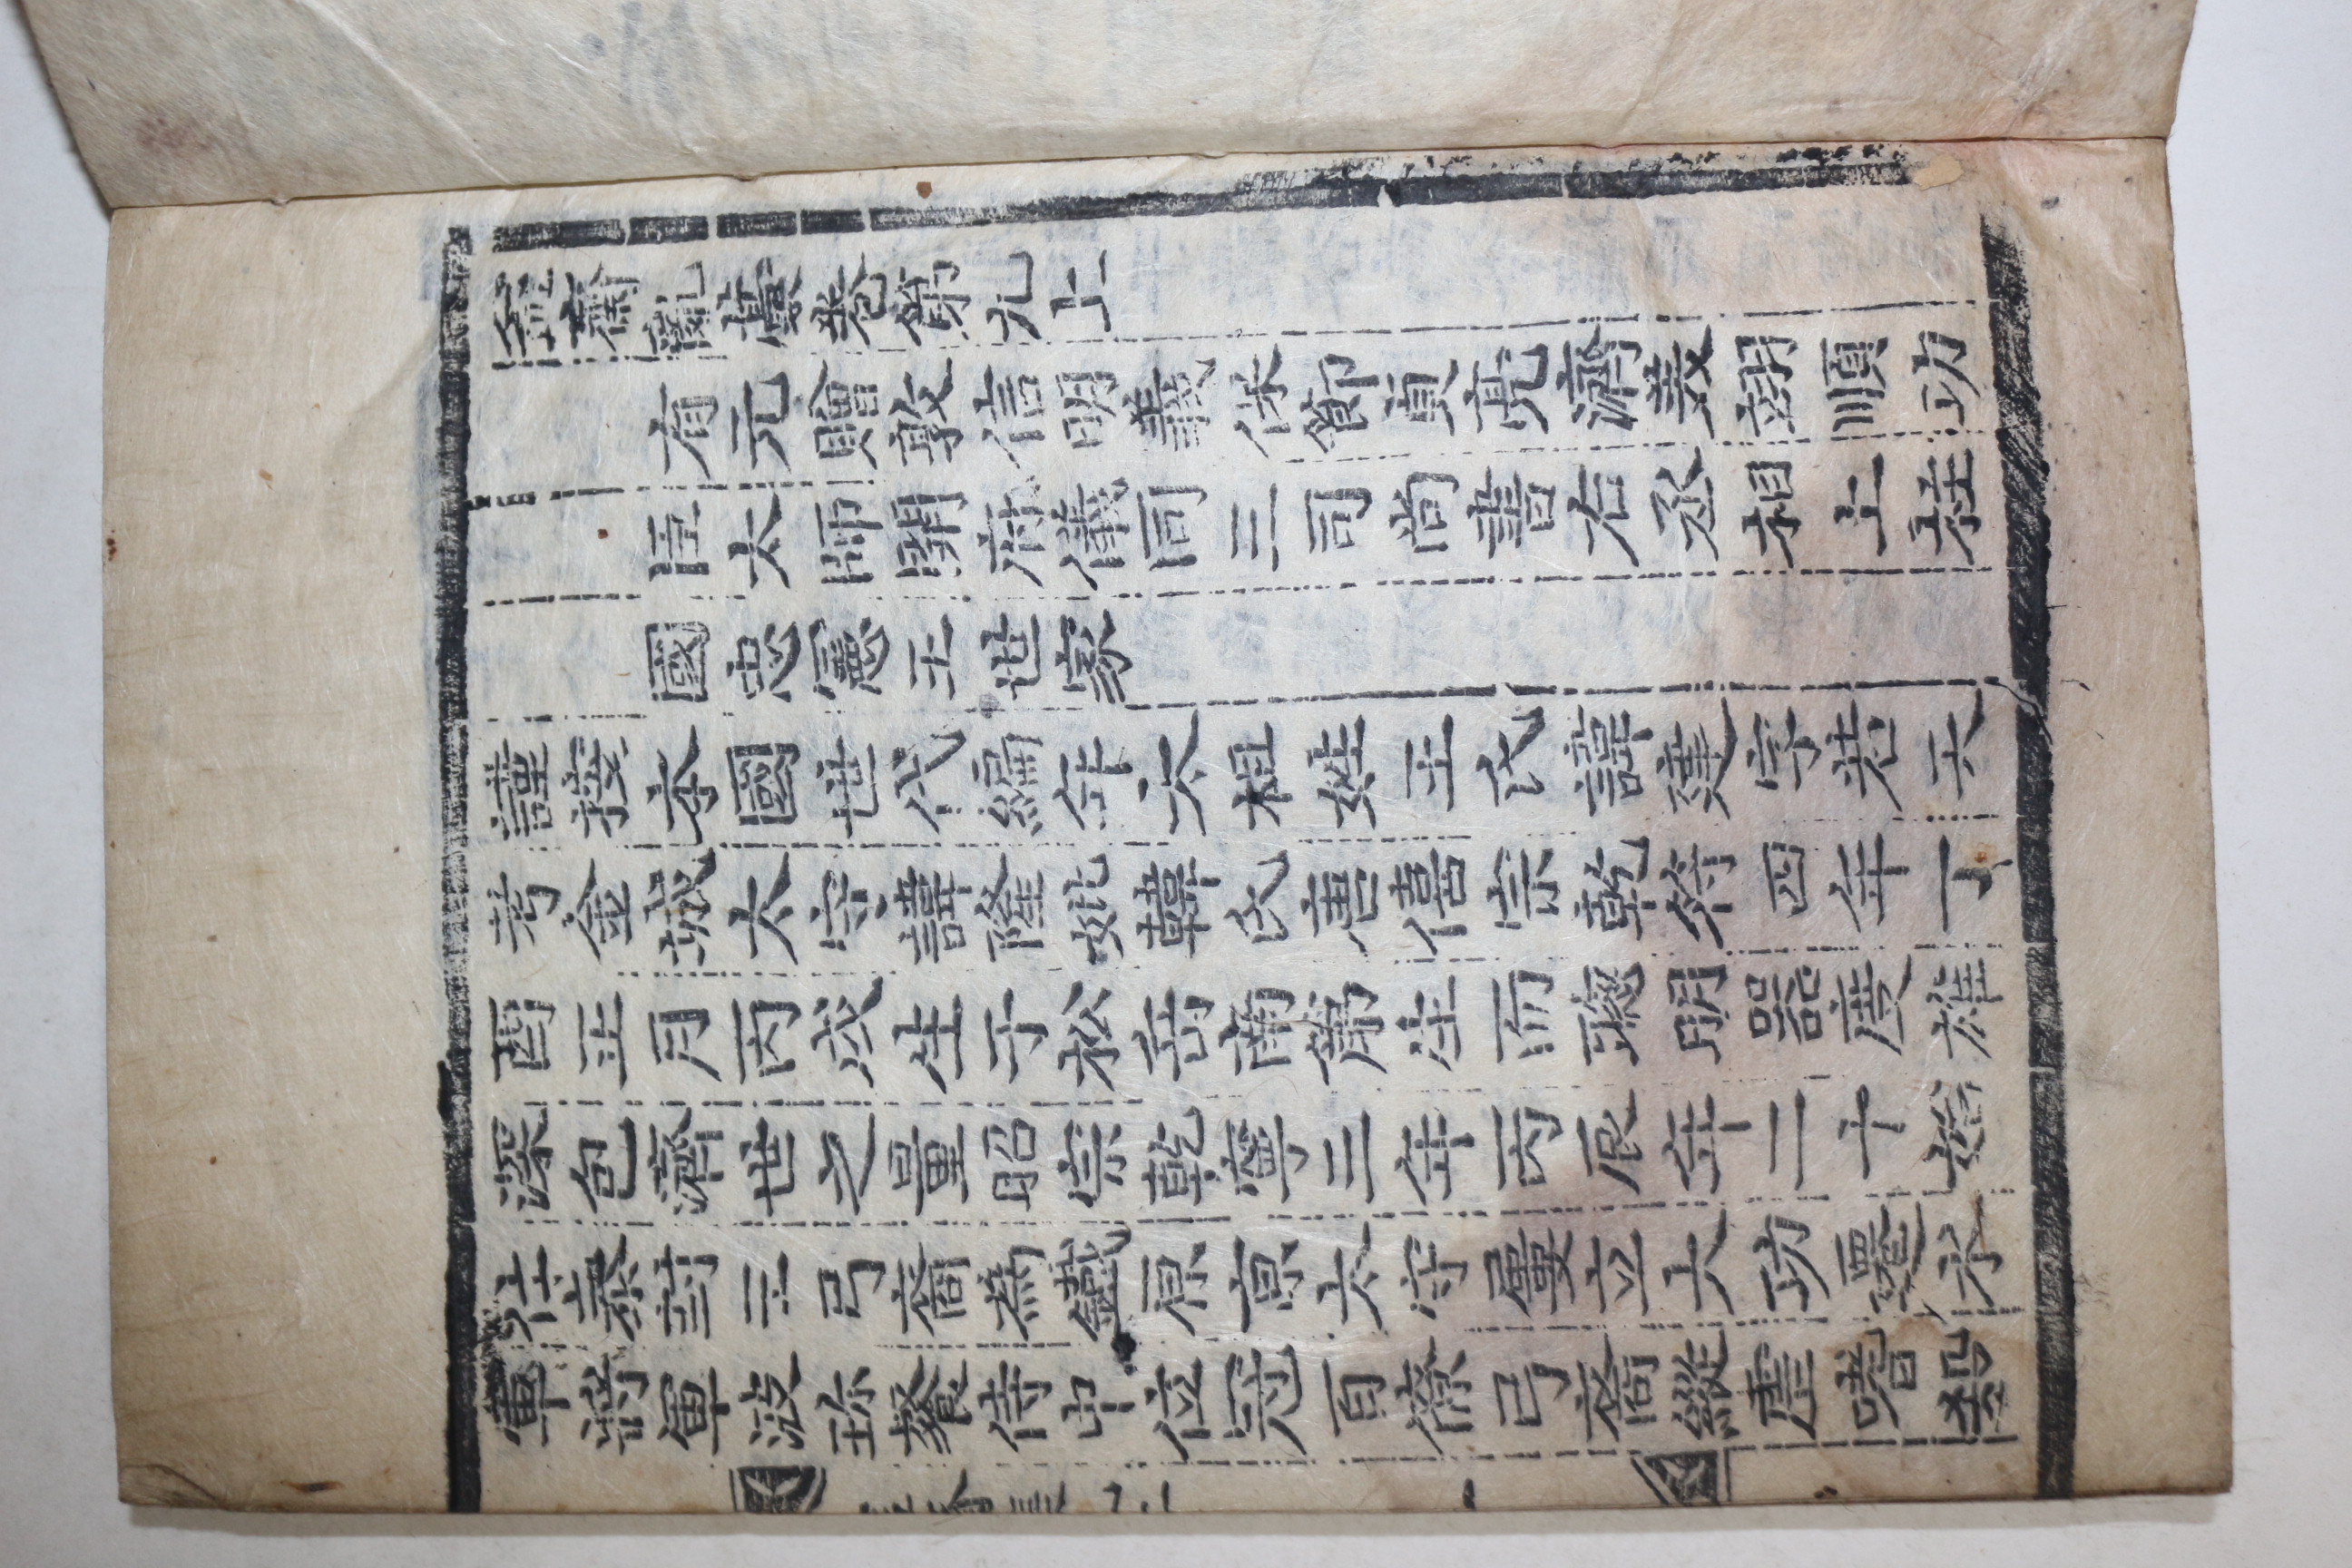 益齋亂藁卷第九上
有元贈敦信明義保節貞亮濟美翊順功
臣太師開府儀同三司尚書右丞相上柱
國忠憲王世家
謹按本國世代編年太祖姓王氏諱建字若天
考金城太守諱隆妣韓氏唐僖宗乾符四年丁
酉正月丙戌生于松岳南第生而聰明器度雄
深包濟世之量昭宗乾寧三年丙辰年二十始
仕泰封主弓裔為鐵原京太守屢立大功遷水
軍將軍波珍餐侍中位冠百僚弓裔縱虐嗜殺